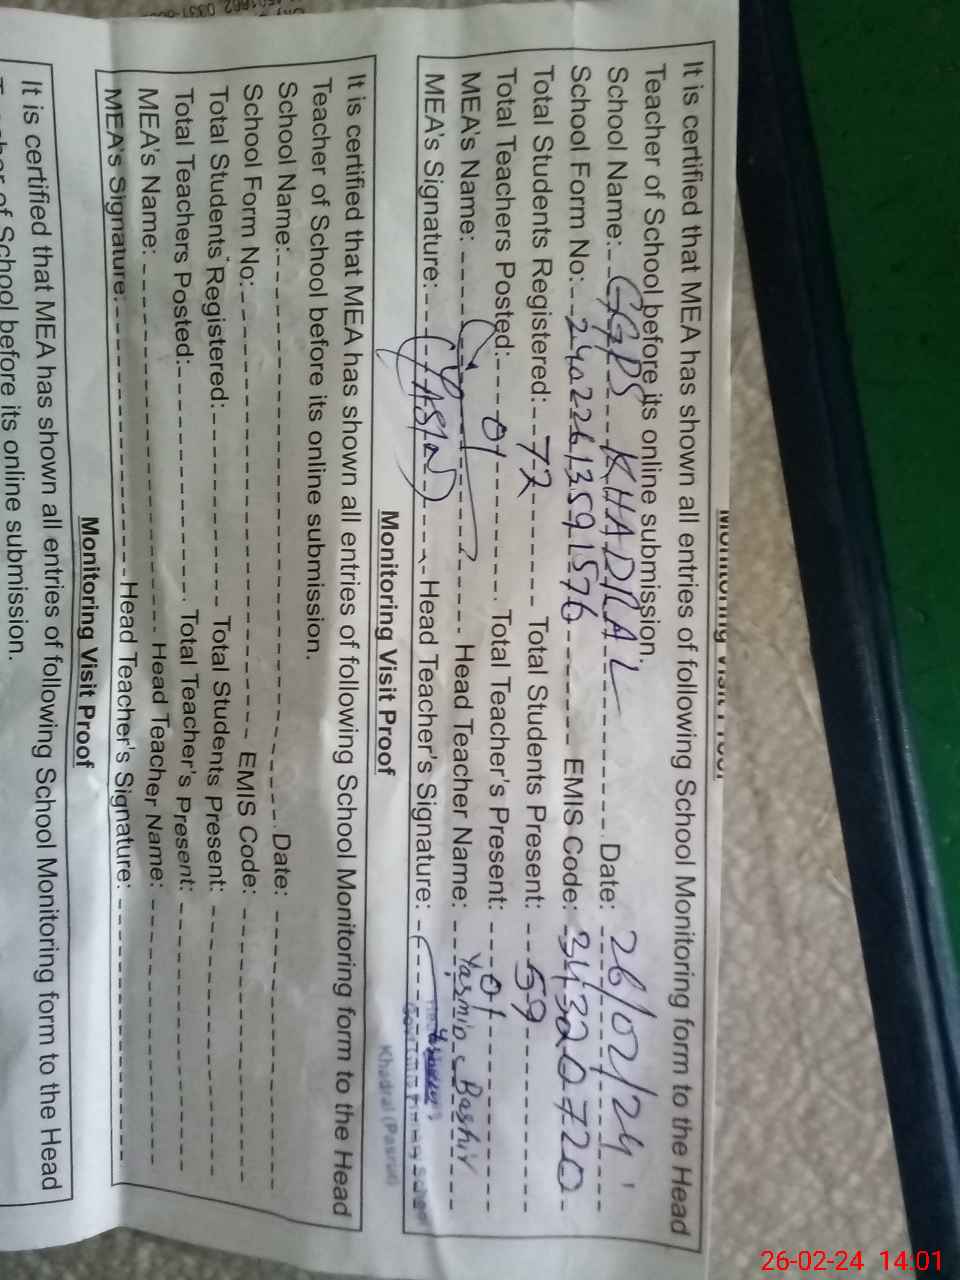 Monitoring Visit Proof
It is certified that MEA has shown all entries of following School Monitoring form to the Head
Teacher of School before its online submission.
School Name: GGPS KHADRAL Date: 26/02/24
School Form No: 240226135915 76 EMIS Code: 34320720
Total Students Registered: 72 Total Students Present: 59
Total Teachers Posted: 01 Total Teacher's Present: 01
MEA's Name: Head Teacher Name: Yasmin Bashir
MEA's Signature: (YASIN) Head Teacher's Signature:
Khadral (Pasrur)
Monitoring Visit Proof
It is certified that MEA has shown all entries of following School Monitoring form to the Head
Teacher of School before its online submission.
School Name: Date:
School Form No: EMIS Code:
Total Students Registered: Total Students Present:
Total Teachers Posted: Total Teacher's Present:
MEA's Name: Head Teacher Name:
MEA's Signature: Head Teacher's Signature:
Monitoring Visit Proof
It is certified that MEA has shown all entries of following School Monitoring form to the Head
Teacher of School before its online submission.
26-02-24 14:01